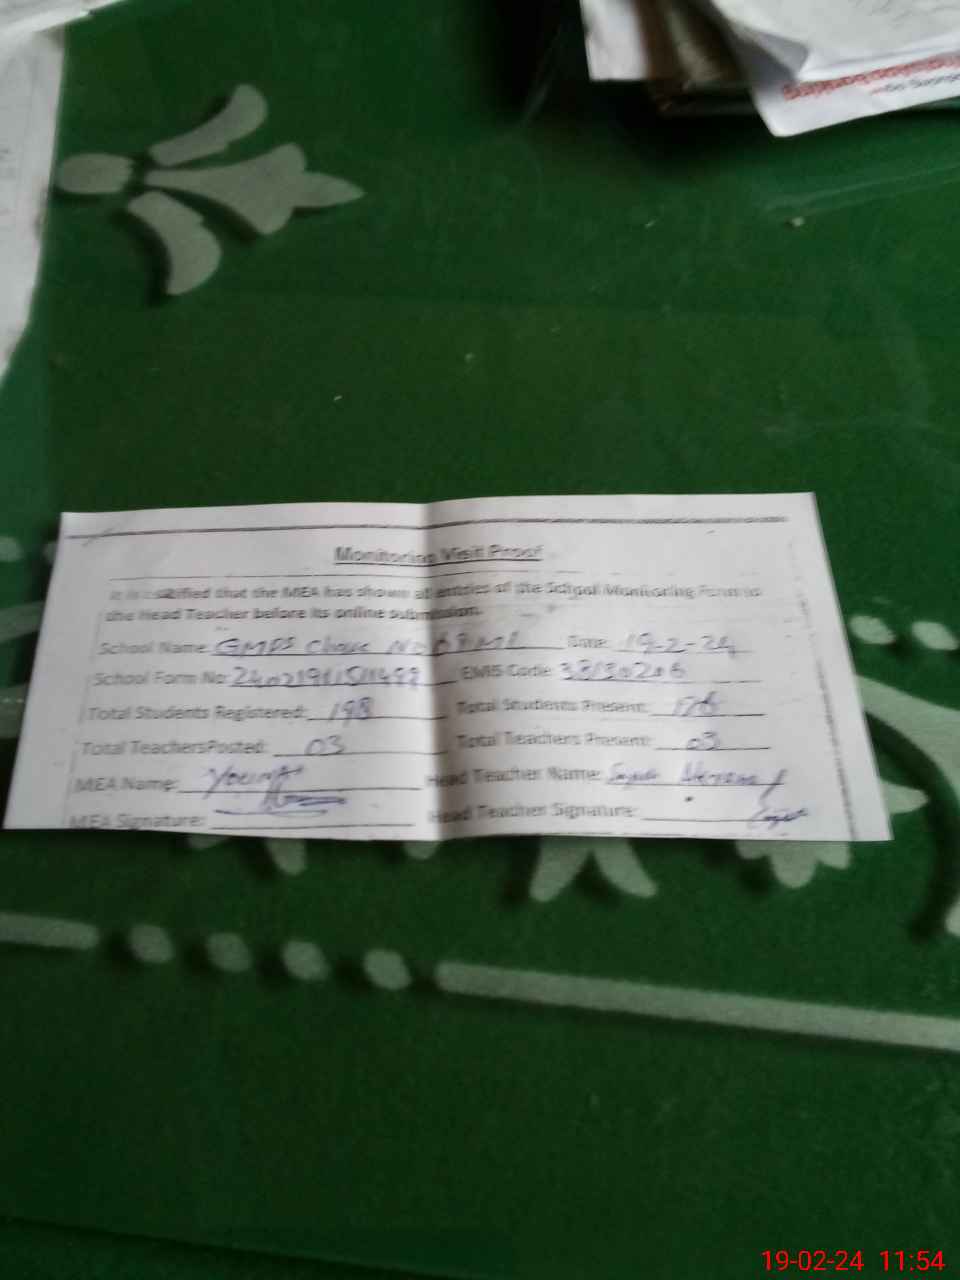 Monitoring Visit Proof
It is certified that the MEA has shown all entries of the School Monitoring Form to
the Head Teacher before its online submission.
School Name: GMPS Chak No Date: 19-2-24
School Form No: EMIS Code: 38130206
Total Students Registered: 198 Total Students Present: 176
Total Teachers Posted: 03 Total Teachers Present: 03
MEA Name: Head Teacher Name:
MEA Signature: Head Teacher Signature:
19-02-24 11:54